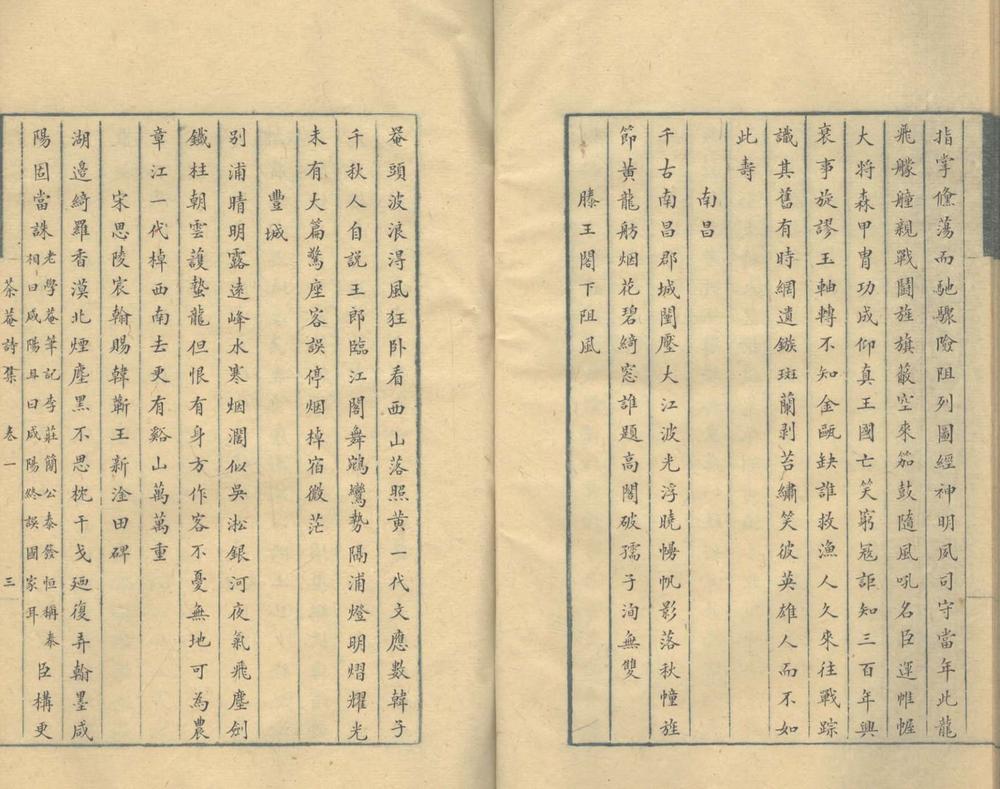 指掌儵蕩而馳驟險阻列圖經神明夙司守當年此龍
飛艨艟親戰鬬旌旗蔽空來笳鼓隨風吼名臣運帷幄
大將森甲冑功成仰真王國亡笑窮寇詎知三百年興
衰事旋謬玉軸轉不知金甌缺誰救漁人久來往戰踪
識其舊有時網遺鏃斑蘭剥苔繡笑彼英雄人而不如
此壽
南昌
千古南昌郡城闉壓大江波光浮曉幔帆影落秋幢旌
節黃龍舫烟花碧綺窓誰題高閣破孺子洵無雙
滕王閣下阻風
菴頭波浪浔風狂卧看西山落照黃一代文應數韓子
千秋人自説王郎臨江閣舞鵷鸞勢隔浦燈明熠耀光
未有大篇驚座客誤停烟棹宿微茫
豐城
別浦晴明露遠峰水寒烟濶似吳淞銀河夜氣飛塵劍
鐵柱朝雲護蟄龍但恨有身方作客不憂無地可為農
章江一代棹西南去更有谿山萬萬重
宋思陵宸翰賜韓蘄王新淦田碑
湖邉綺羅香漠北煙塵黑不思枕干戈廼復弄翰墨咸
陽固當誅老學菴筆記李莊簡公泰發恒稱秦相曰咸陽且曰咸陽終誤國家耳臣構更
茶菴詩集 卷一 三